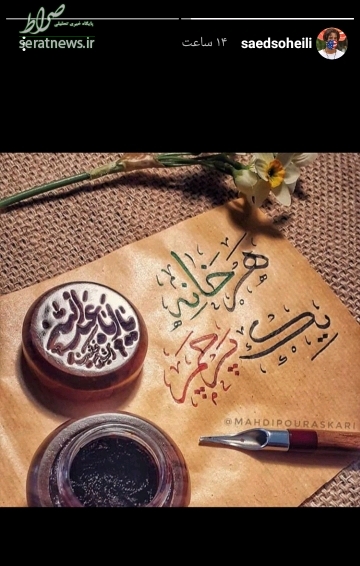 صراط
پایگاه خبری تحلیلی
seratnews.ir
saedsoheili ۱۴ ساعت
هر خانه
یک پرچم
یا اباعبدالله
@MAHDIPOURASKARI